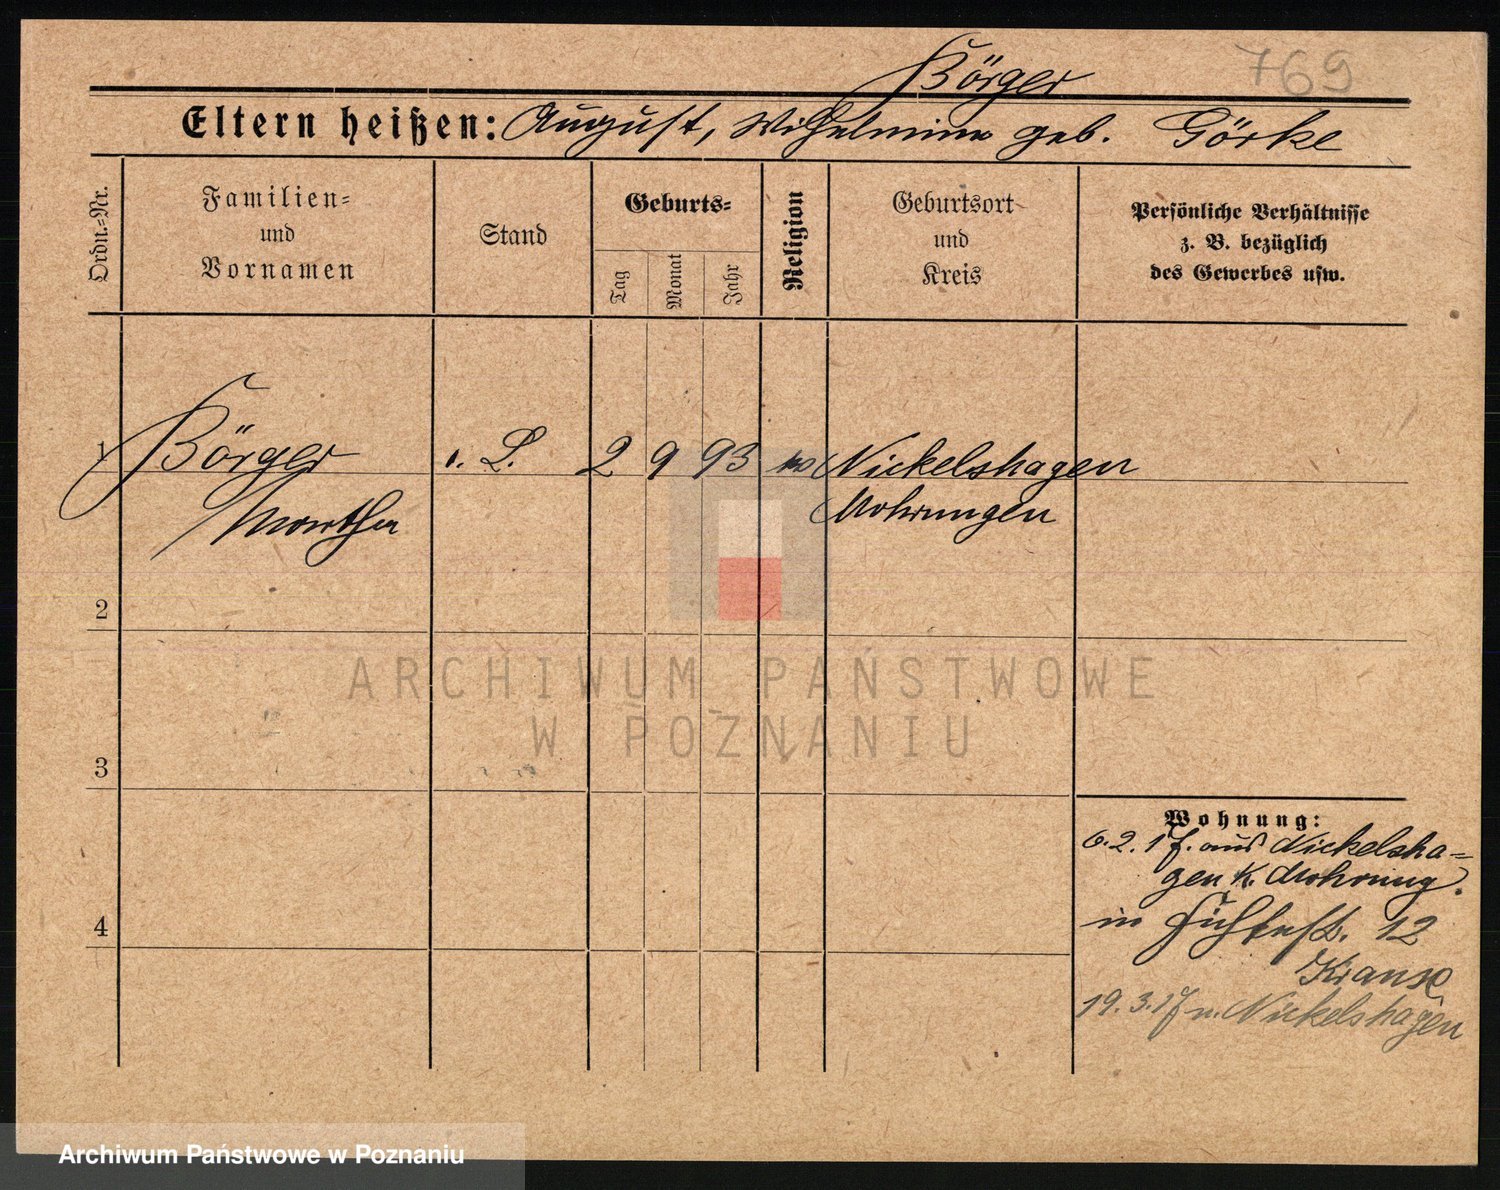 769
Börger
Eltern heißen: August, Wilhelmine geb. Görke
Ordn.-Nr.
Familien-
und
Vornamen
Stand
Geburts-
Tag
Monat
Jahr
Religion
Geburtsort
und
Kreis
Persönliche Verhältnisse
z. B. bezüglich
des Gewerbes usw.
1 Börger L. 2 9 93 Nickelshagen
Martha Mohrungen
2
3
4
ARCHIWUM PAŃSTWOWE
W POZNANIU
Wohnung:
6.2.17. aus Nickelsha-
gen K. Mohrung.
in Fichtestr. 12
Krause
19.3.17 n. Nickelshagen
Archiwum Państwowe w Poznaniu